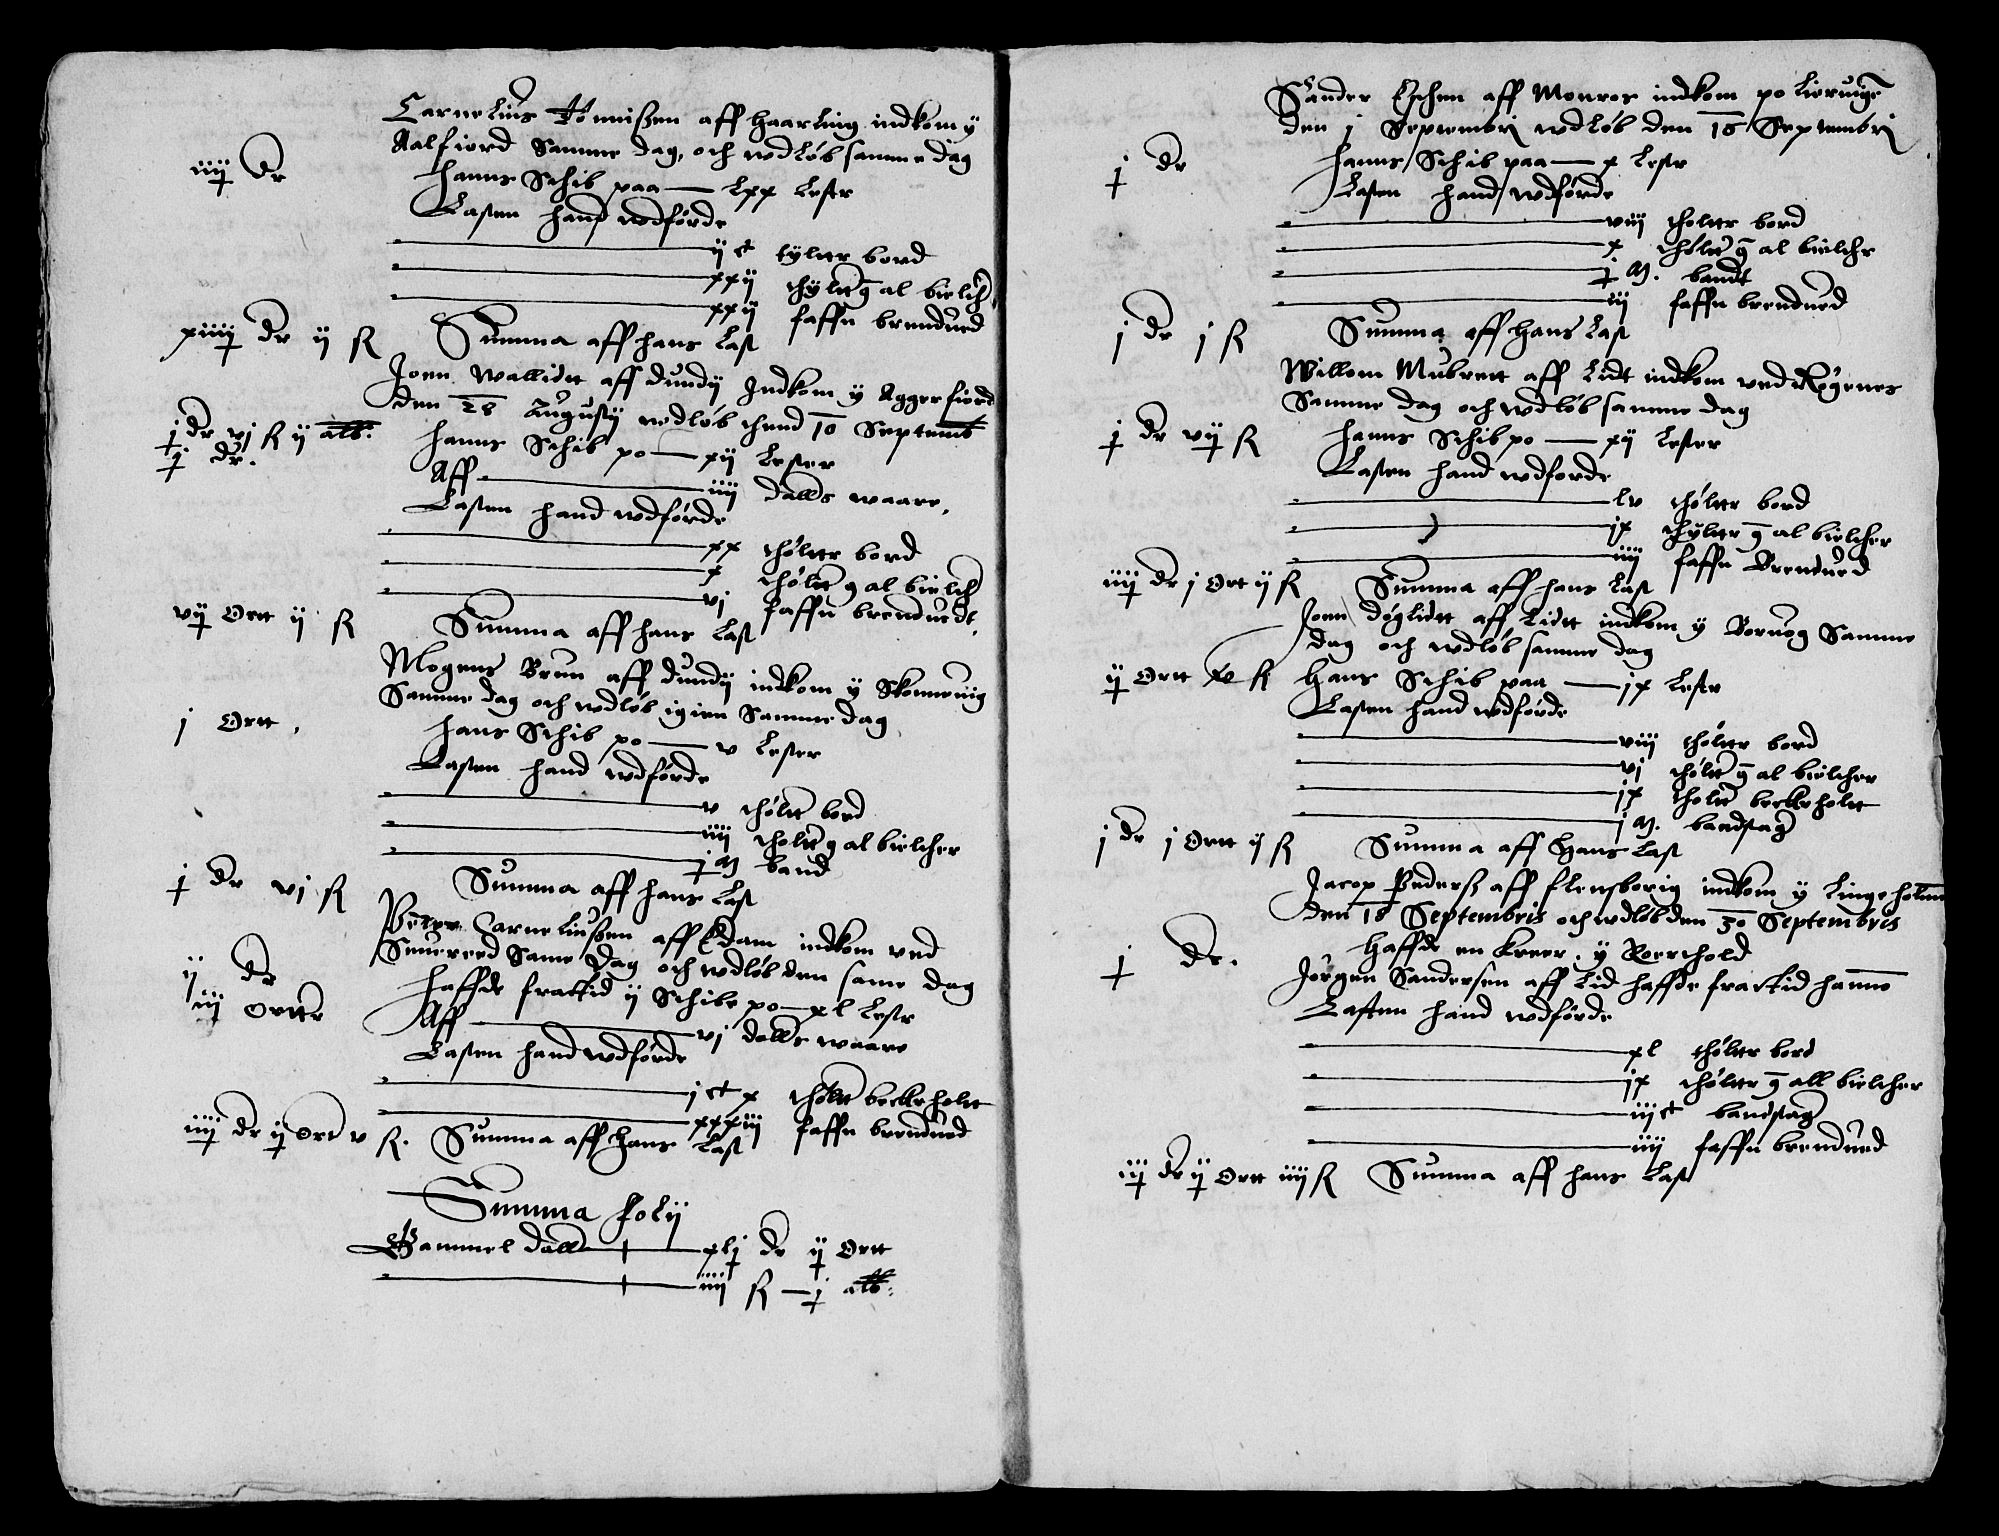 Carnelius Tönnißen aff Haarling indkom ÿ
Aalfiord Samme dag, och wdløb samme dag
iiij dr
hanns Schib paa — lxx Lestr
Lasten hand wdførde
ij ct tylttr bord
xxij thyltt g al bielch
xxij faffn brendued
xiiij dr ij ß Summa aff hans Last
Joen Wallidtt aff dundÿ Indkom ÿ Aggerfiord
den 28 Augustÿ wdløb thend 10 Septemb
j dr vj ß ij alb.
hanns Schib po — xij Lester
j dr.
Aff — iiij dallrs waare,
Lasten hand wdførde
xx thølttr bord
x thøltt g al bielch
vj faffn brenduedt,
vij Ortt ij ß Summa aff hans Last
Mogens Brun aff dundÿ indkom ÿ Skonneuig
Samme dag och wdløb igien Samme dag
j Ortt,
hans Schib po — v Lester
Lasten hand wdførde
v thøltt bord
iiij tholtt g al bielcher
j m band
j dr vj ß Summa aff hans Last
Petter Carneliußen aff Edam indkom ved
Seuereed Same dag och wdløb den same dag
ij dr
haffde fracktid ÿ Schibe po — xl Lestr
iij Orttr
Aff — vj dallrs waare
Lasten hand wdførde
j ct x thøltt beckeholtt
xxxiij faffn brendued
iiij dr ij Ort v ß. Summa aff hans Last
Summa folÿ
Gammel dallr — xlj dr ij Ortt
iiij ß — j alb.
Sander Eschen aff Monros indkom po Lieruige
den j Septembrj wdløb den 18 Septembrj
j dr
hanns Schib paa — x Lestr
Lasten hand wdførde
viij tholttr bord
x thøltt g al bielcher
j m. bandt
iij faffn brendued
j dr j ß Summa aff hans Last
Willom Mubrett aff Lidt indkom ved Røgenes
Samme dag och wdløb samme dag
j dr vij ß
hanns Schib po — xij Lester
Lasten hand wdførde
lv thølttr bord
ix thylttr g al bielcher
iiij faffn Brendued
iiij dr j Ort ij ß Summa aff hans Last
Joen døglidtt aff Lidtt indkom ÿ Boruog Samme
dag och wdløb samme dag
ij Ortt xv ß Hans Schib paa — ix Lestr
Lasten hand wdførde
viij tholttr bord
vj thøltt g al bielcher
ix tholtt beckeholtt
j m. bandstag
j dr j Ortt ij ß Summa aff Hans Last
Jacop Pederß aff flensborig indkom ÿ Lingeholmm
den 18 Septembris och wdløb den 30 Septembris
Haffde en kreer, ÿ Roerthold
j dr.
Jørgen Sandersen aff Lid haffde fracktid hannom
Lasten hand wdførde
xl thølttr bord
ix thølttr g all bielcher
iiij ct bandstag
iiij faffn brendued
iij dr ij Ortt iiij ß Summa aff hans Last